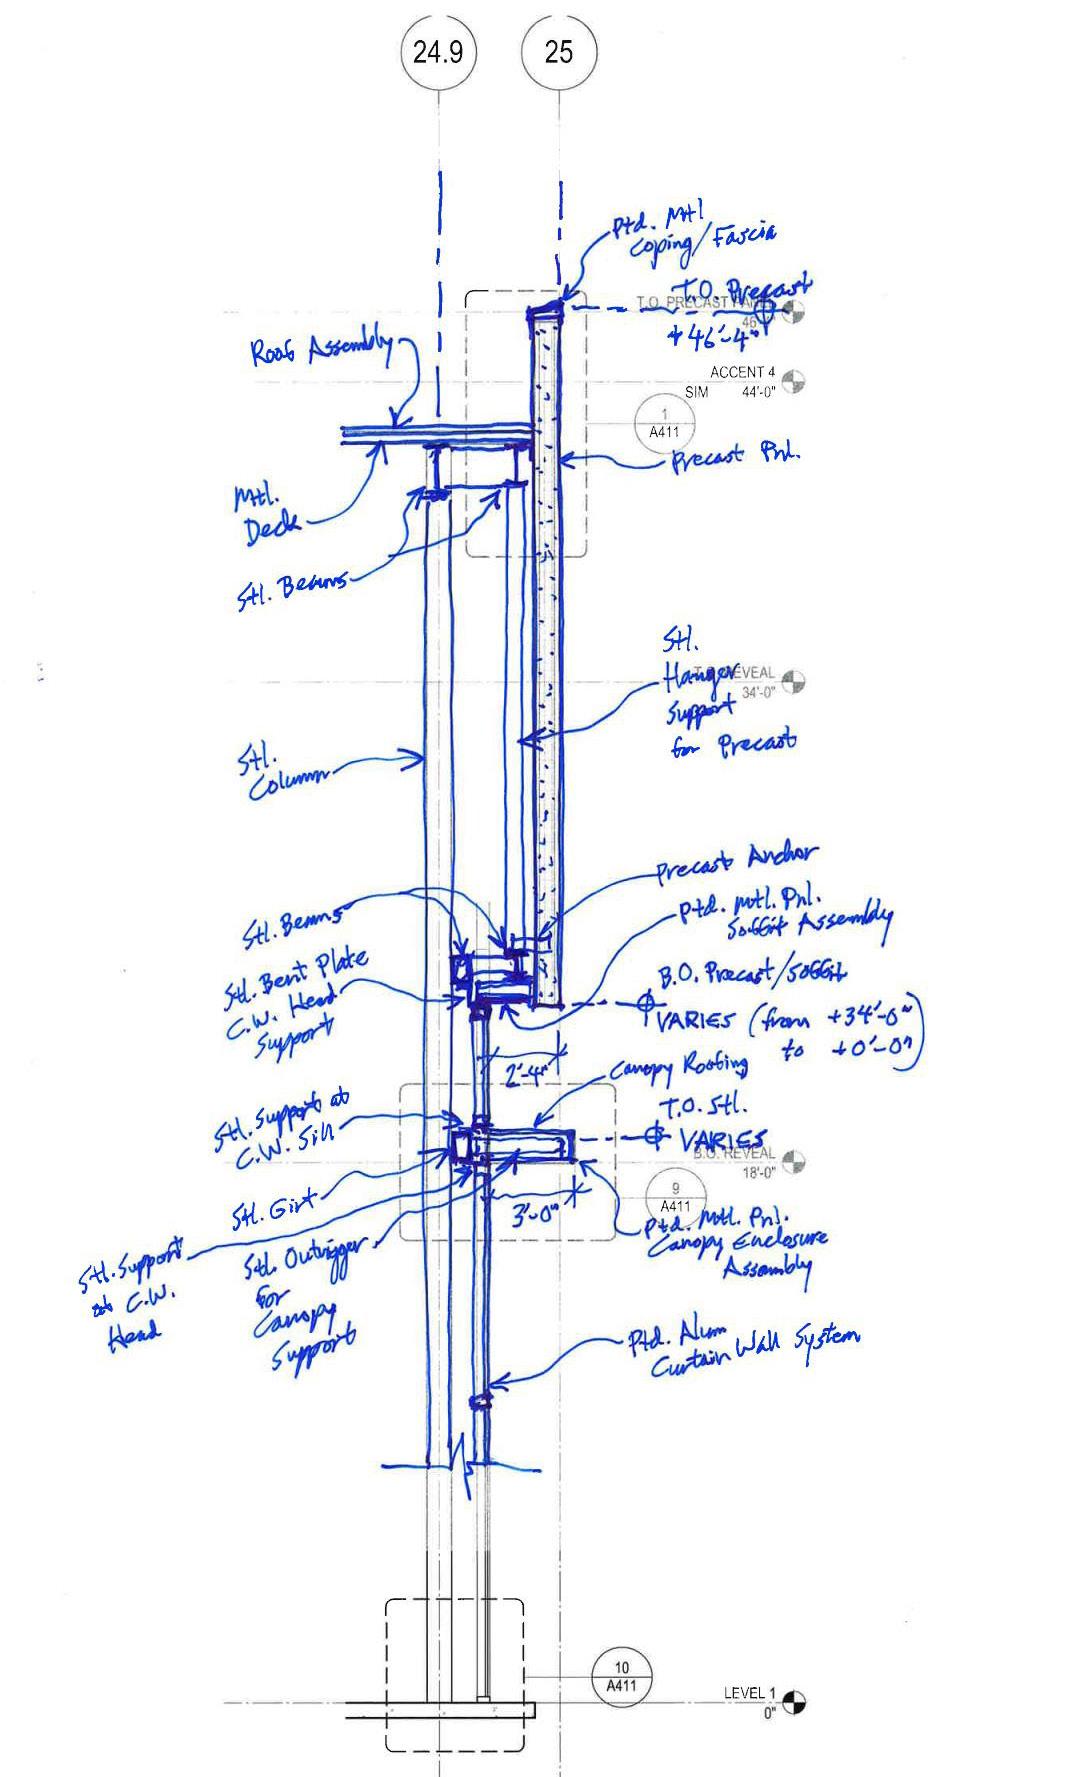 24.9
25
Ptd. Mtl
Coping/Fascia
T.O. Precast
T.O. PRECAST
46'
+46'-4"
Roof Assembly
ACCENT 4
SIM 44'-0"
1
A411
Precast Pnl.
Mtl.
Deck
Stl. Beams
Stl.
Hanger
REVEAL
34'-0"
Support
for Precast
Stl.
Column
Precast Anchor
Ptd. Mtl. Pnl.
Soffit Assembly
Stl. Beams
Stl. Bent Plate
C.W. Head
Support
B.O. Precast/Soffit
VARIES (from +34'-0"
to +0'-0")
2'-4"
Canopy Roofing
Stl. Support at
C.W. Sill
T.O. Stl.
VARIES
B.O. REVEAL
18'-0"
9
A411
3'-0"
Stl. Girt
Ptd. Mtl. Pnl.
Canopy Enclosure
Assembly
Stl. Support
at C.W.
Head
Stl. Outrigger
for
Canopy
Support
Ptd. Alum
Curtain Wall System
10
A411
LEVEL 1
0"